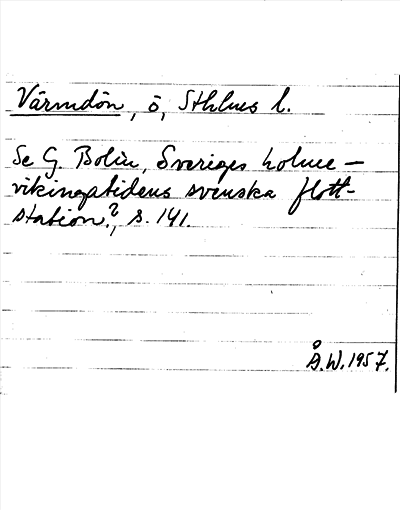 Värmdön, ö, Sthlms l.
Se G. Bolin, Sveriges holme –
vikingatidens svenska flott-
station?, s. 141.
Å.W. 1957.